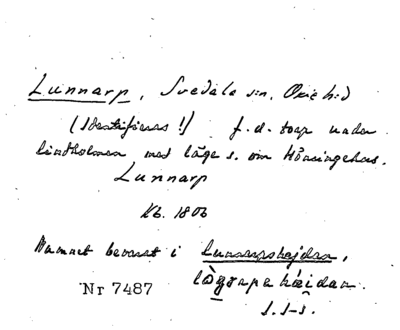 Lunnarp, Svedala sn, Oxie hd
(Identifieras!) f.d. torp under
Lindholmen med läge s. om Hönsingehus.
Lunnarp
Kb. 1806
Namnet bevarat i Lunnarpshejdan,
Nr 7487